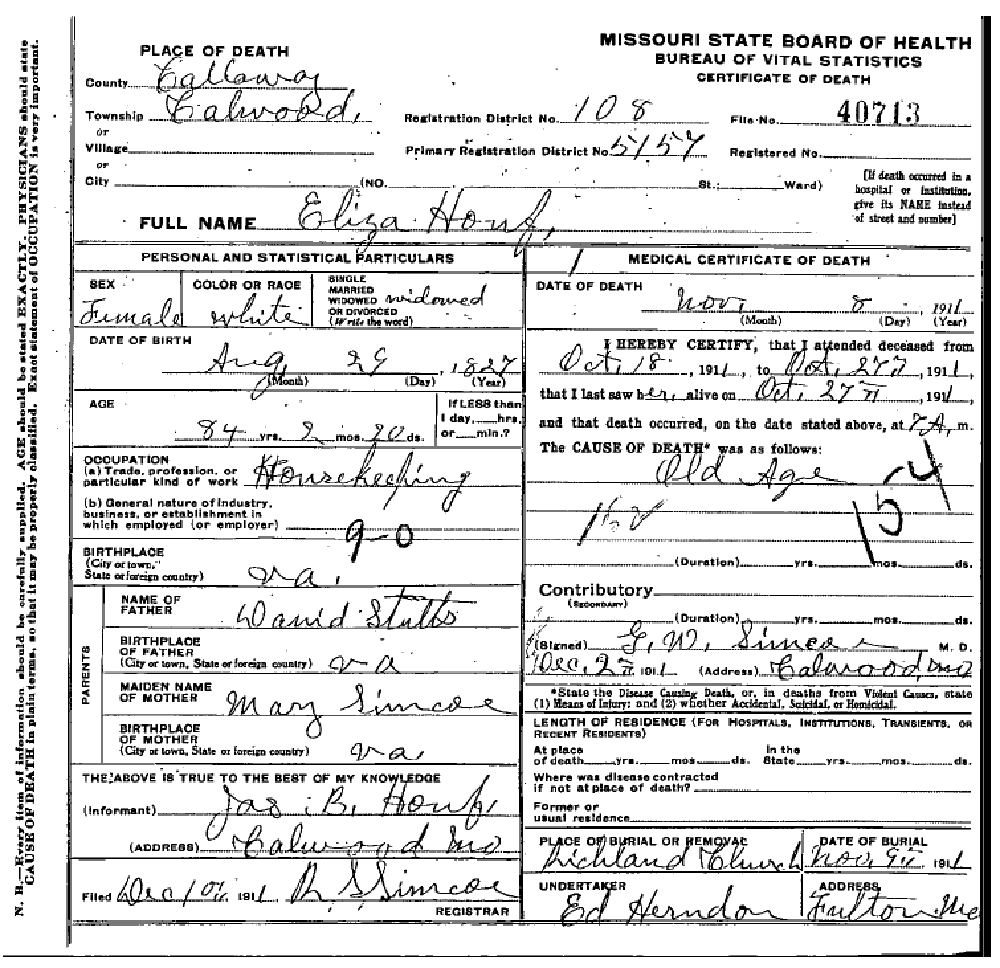 N. B.—Every item of information should be carefully supplied. AGE should be stated EXACTLY. PHYSICIANS should state
CAUSE OF DEATH in plain terms, so that it may be properly classified. Exact statement of OCCUPATION is very important.
MISSOURI STATE BOARD OF HEALTH
BUREAU OF VITAL STATISTICS
CERTIFICATE OF DEATH
PLACE OF DEATH
County Callaway
Township Calwood,
or
Village
or
City (NO. St.; Ward)
Registration District No. 108
File No. 40713
Primary Registration District No. 5157
Registered No.
[If death occurred in a
hospital or institution,
give its NAME instead
of street and number]
FULL NAME Eliza Houf,
PERSONAL AND STATISTICAL PARTICULARS
SEX
Female
COLOR OR RACE
white
SINGLE
MARRIED
WIDOWED
OR DIVORCED
(Write the word)
widowed
DATE OF BIRTH
Aug 29, 1827
(Month) (Day) (Year)
AGE
84 yrs. 2 mos. 20 ds.
If LESS than
1 day, hrs.
or min.?
OCCUPATION
(a) Trade, profession, or
particular kind of work Housekeeping
(b) General nature of industry,
business, or establishment in
which employed (or employer)
9-0
BIRTHPLACE
(City or town,
State or foreign country) va.
PARENTS
NAME OF
FATHER David Stutts
BIRTHPLACE
OF FATHER
(City or town, State or foreign country) va
MAIDEN NAME
OF MOTHER Mary Simcoe
BIRTHPLACE
OF MOTHER
(City or town, State or foreign country) va,
THE ABOVE IS TRUE TO THE BEST OF MY KNOWLEDGE
(Informant) Jas. B. Houf,
(ADDRESS) Calwood Mo
Filed Dec 1911 R. S Simcoe
REGISTRAR
MEDICAL CERTIFICATE OF DEATH
DATE OF DEATH
Nov, 8, 1911
(Month) (Day) (Year)
I HEREBY CERTIFY, that I attended deceased from
Oct, 18, 1911, to Oct, 27th, 1911,
that I last saw her, alive on Oct, 27th, 1911,
and that death occurred, on the date stated above, at 7 A, m.
The CAUSE OF DEATH* was as follows:
Old Age
154
(Duration) yrs. mos. ds.
Contributory
(SECONDARY)
(Duration) yrs. mos. ds.
(Signed) G. W. Simcoe M. D.
Dec, 2nd 1911 (Address) Calwood, Mo
*State the Disease Causing Death, or, in deaths from Violent Causes, state
(1) Means of Injury; and (2) whether Accidental, Suicidal, or Homicidal.
LENGTH OF RESIDENCE (FOR HOSPITALS, INSTITUTIONS, TRANSIENTS, OR
RECENT RESIDENTS)
At place In the
of death yrs. mos. ds. State yrs. mos. ds.
Where was disease contracted
if not at place of death?
Former or
usual residence
PLACE OF BURIAL OR REMOVAL
Richland Church
DATE OF BURIAL
Nov. 9th 1911
UNDERTAKER
Ed Herndon
ADDRESS
Fulton Mo